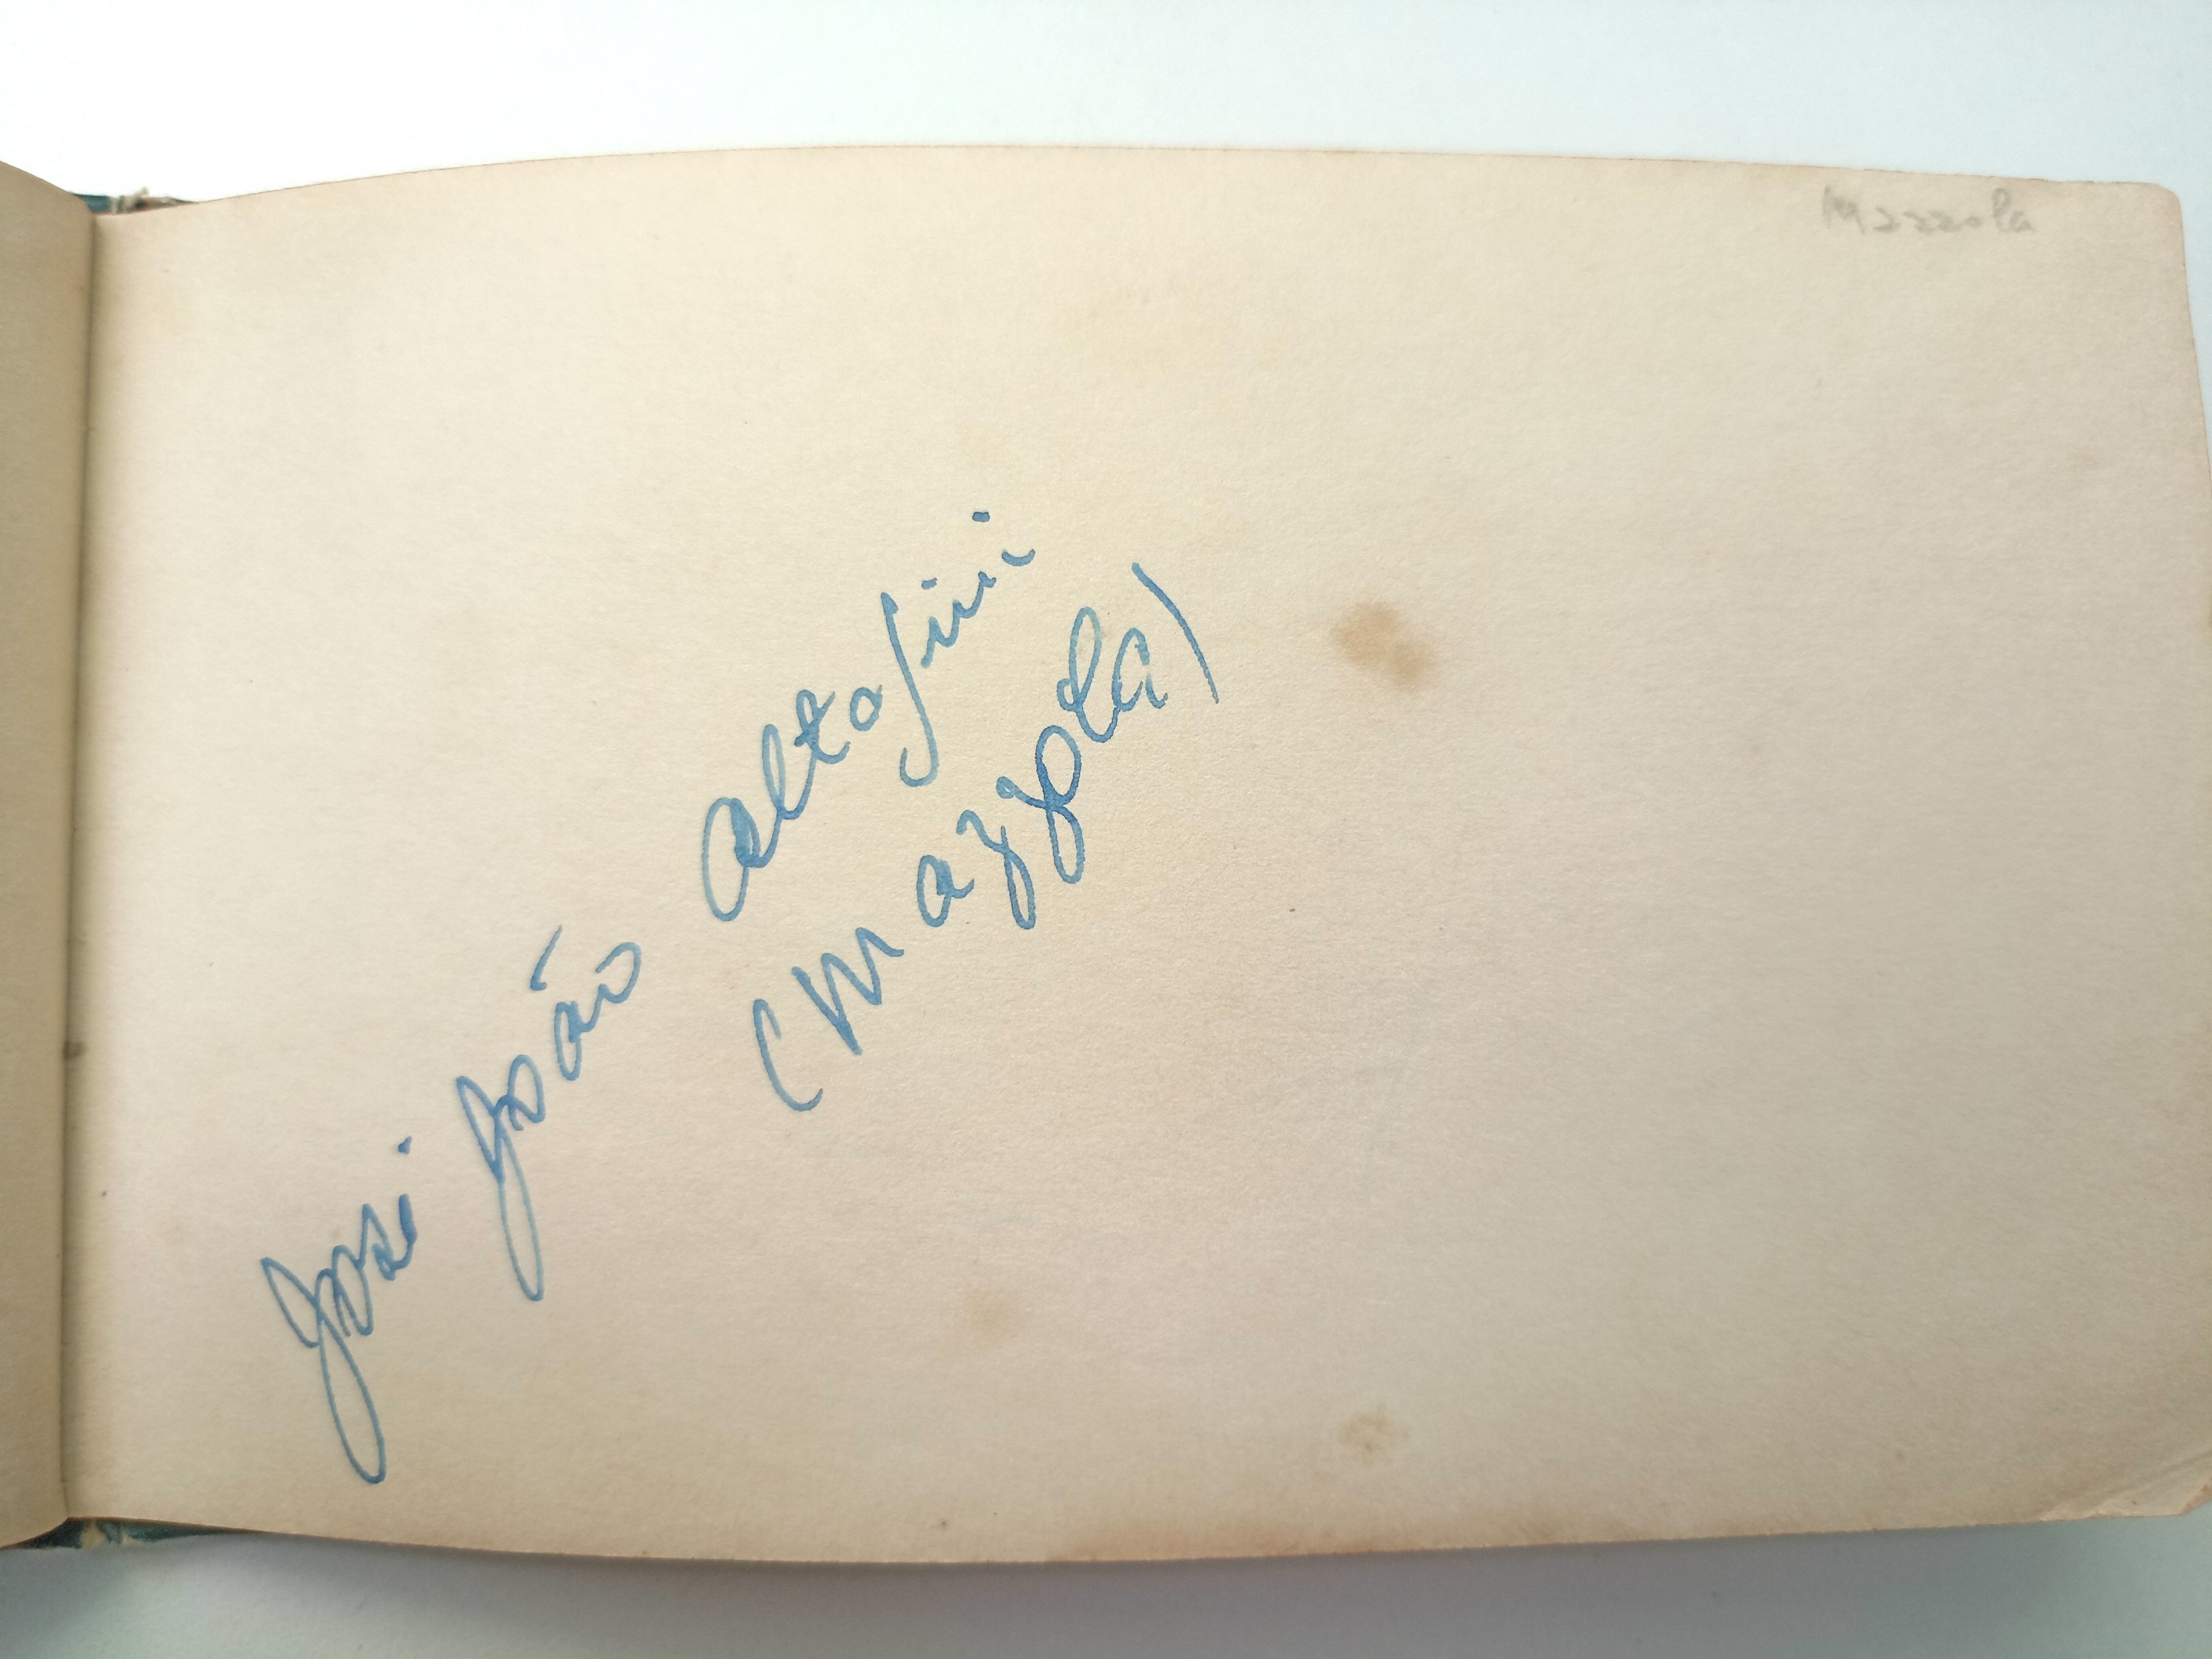 Mazzola
José João Altafini
(Mazzola)